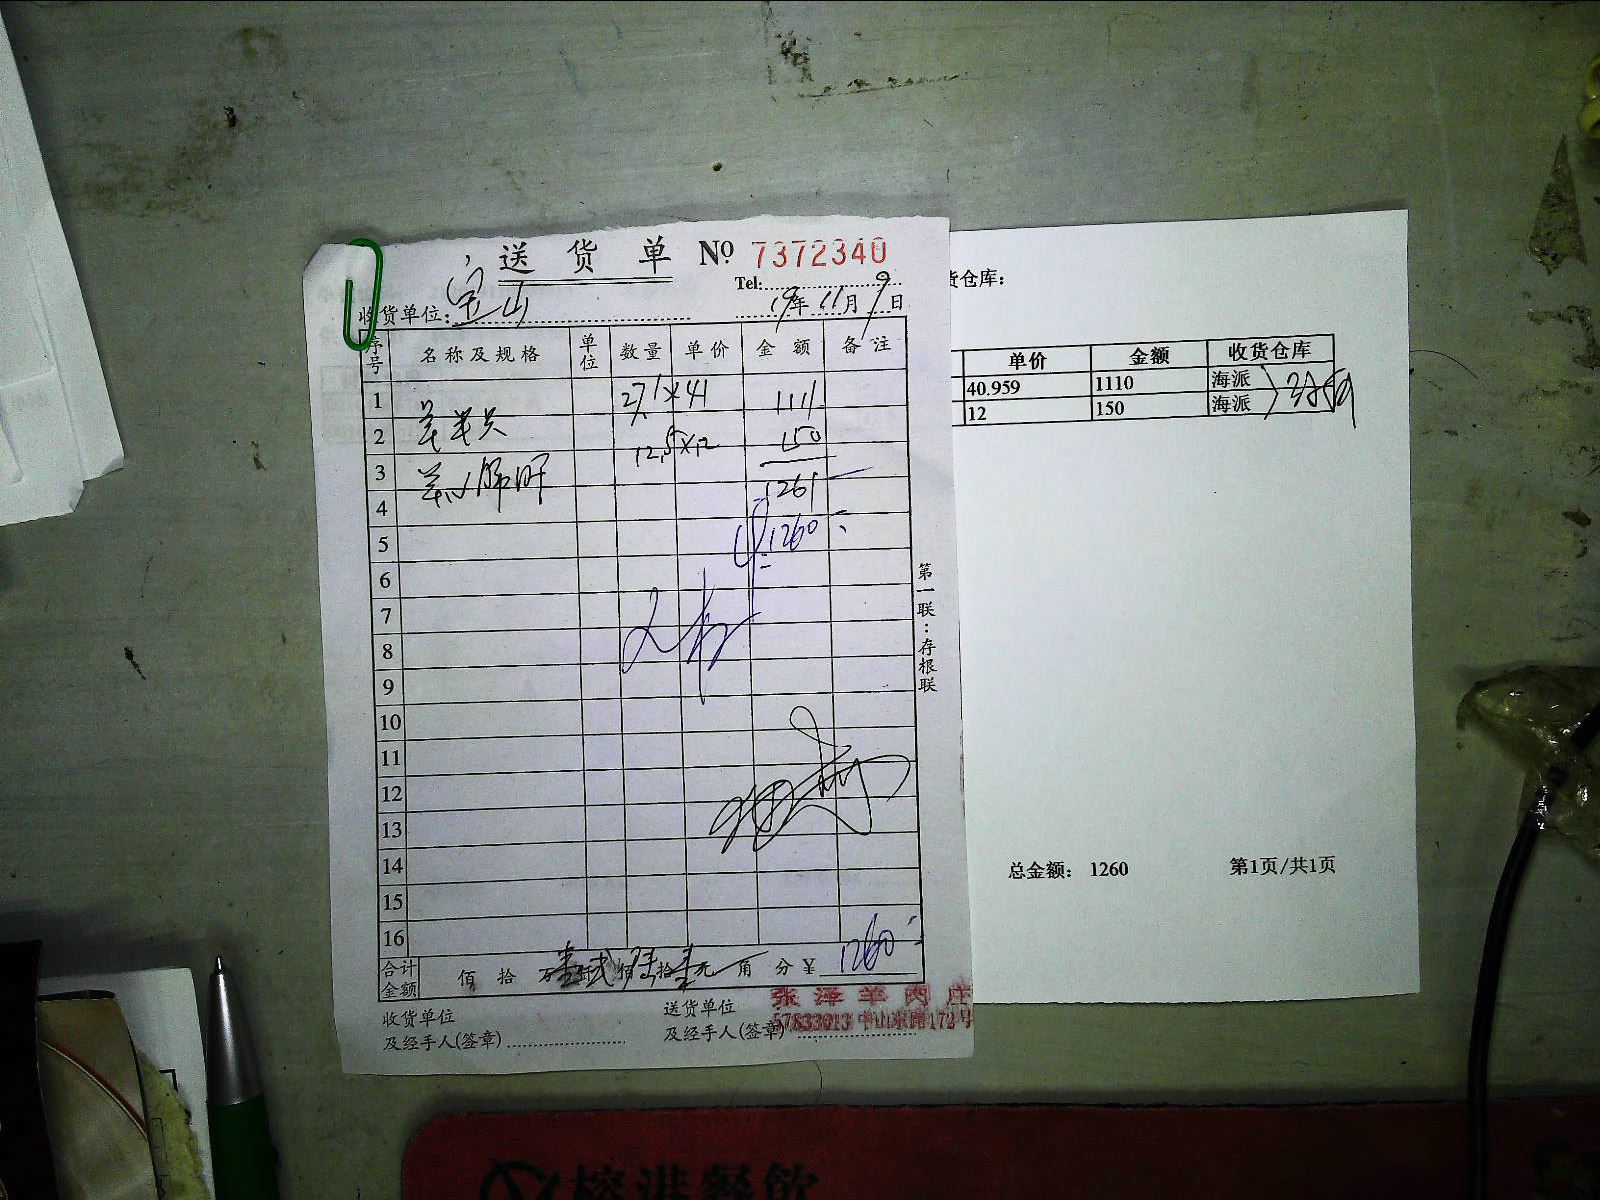 送货单 No 7372340
Tel:
收货单位: 宝山 19年11月9日
序号 名称及规格 单位 数量 单价 金额 备注
1 27.1×41 1111
2 羊半只 12.5×12 150
3 羊心肺肝
4 1261
5 1260
6
7
8
9
10
11
12
13
14
15
16
合计金额 佰 拾 万壹仟贰佰陆拾壹元 角 分 ¥ 1260
收货单位
及经手人(签章)
送货单位
及经手人(签章)
张泽羊肉庄
57833013 中山东路172号
第一联:存根联
货仓库:
单价 金额 收货仓库
40.959 1110 海派
12 150 海派
总金额: 1260 第1页/共1页
榕港餐饮